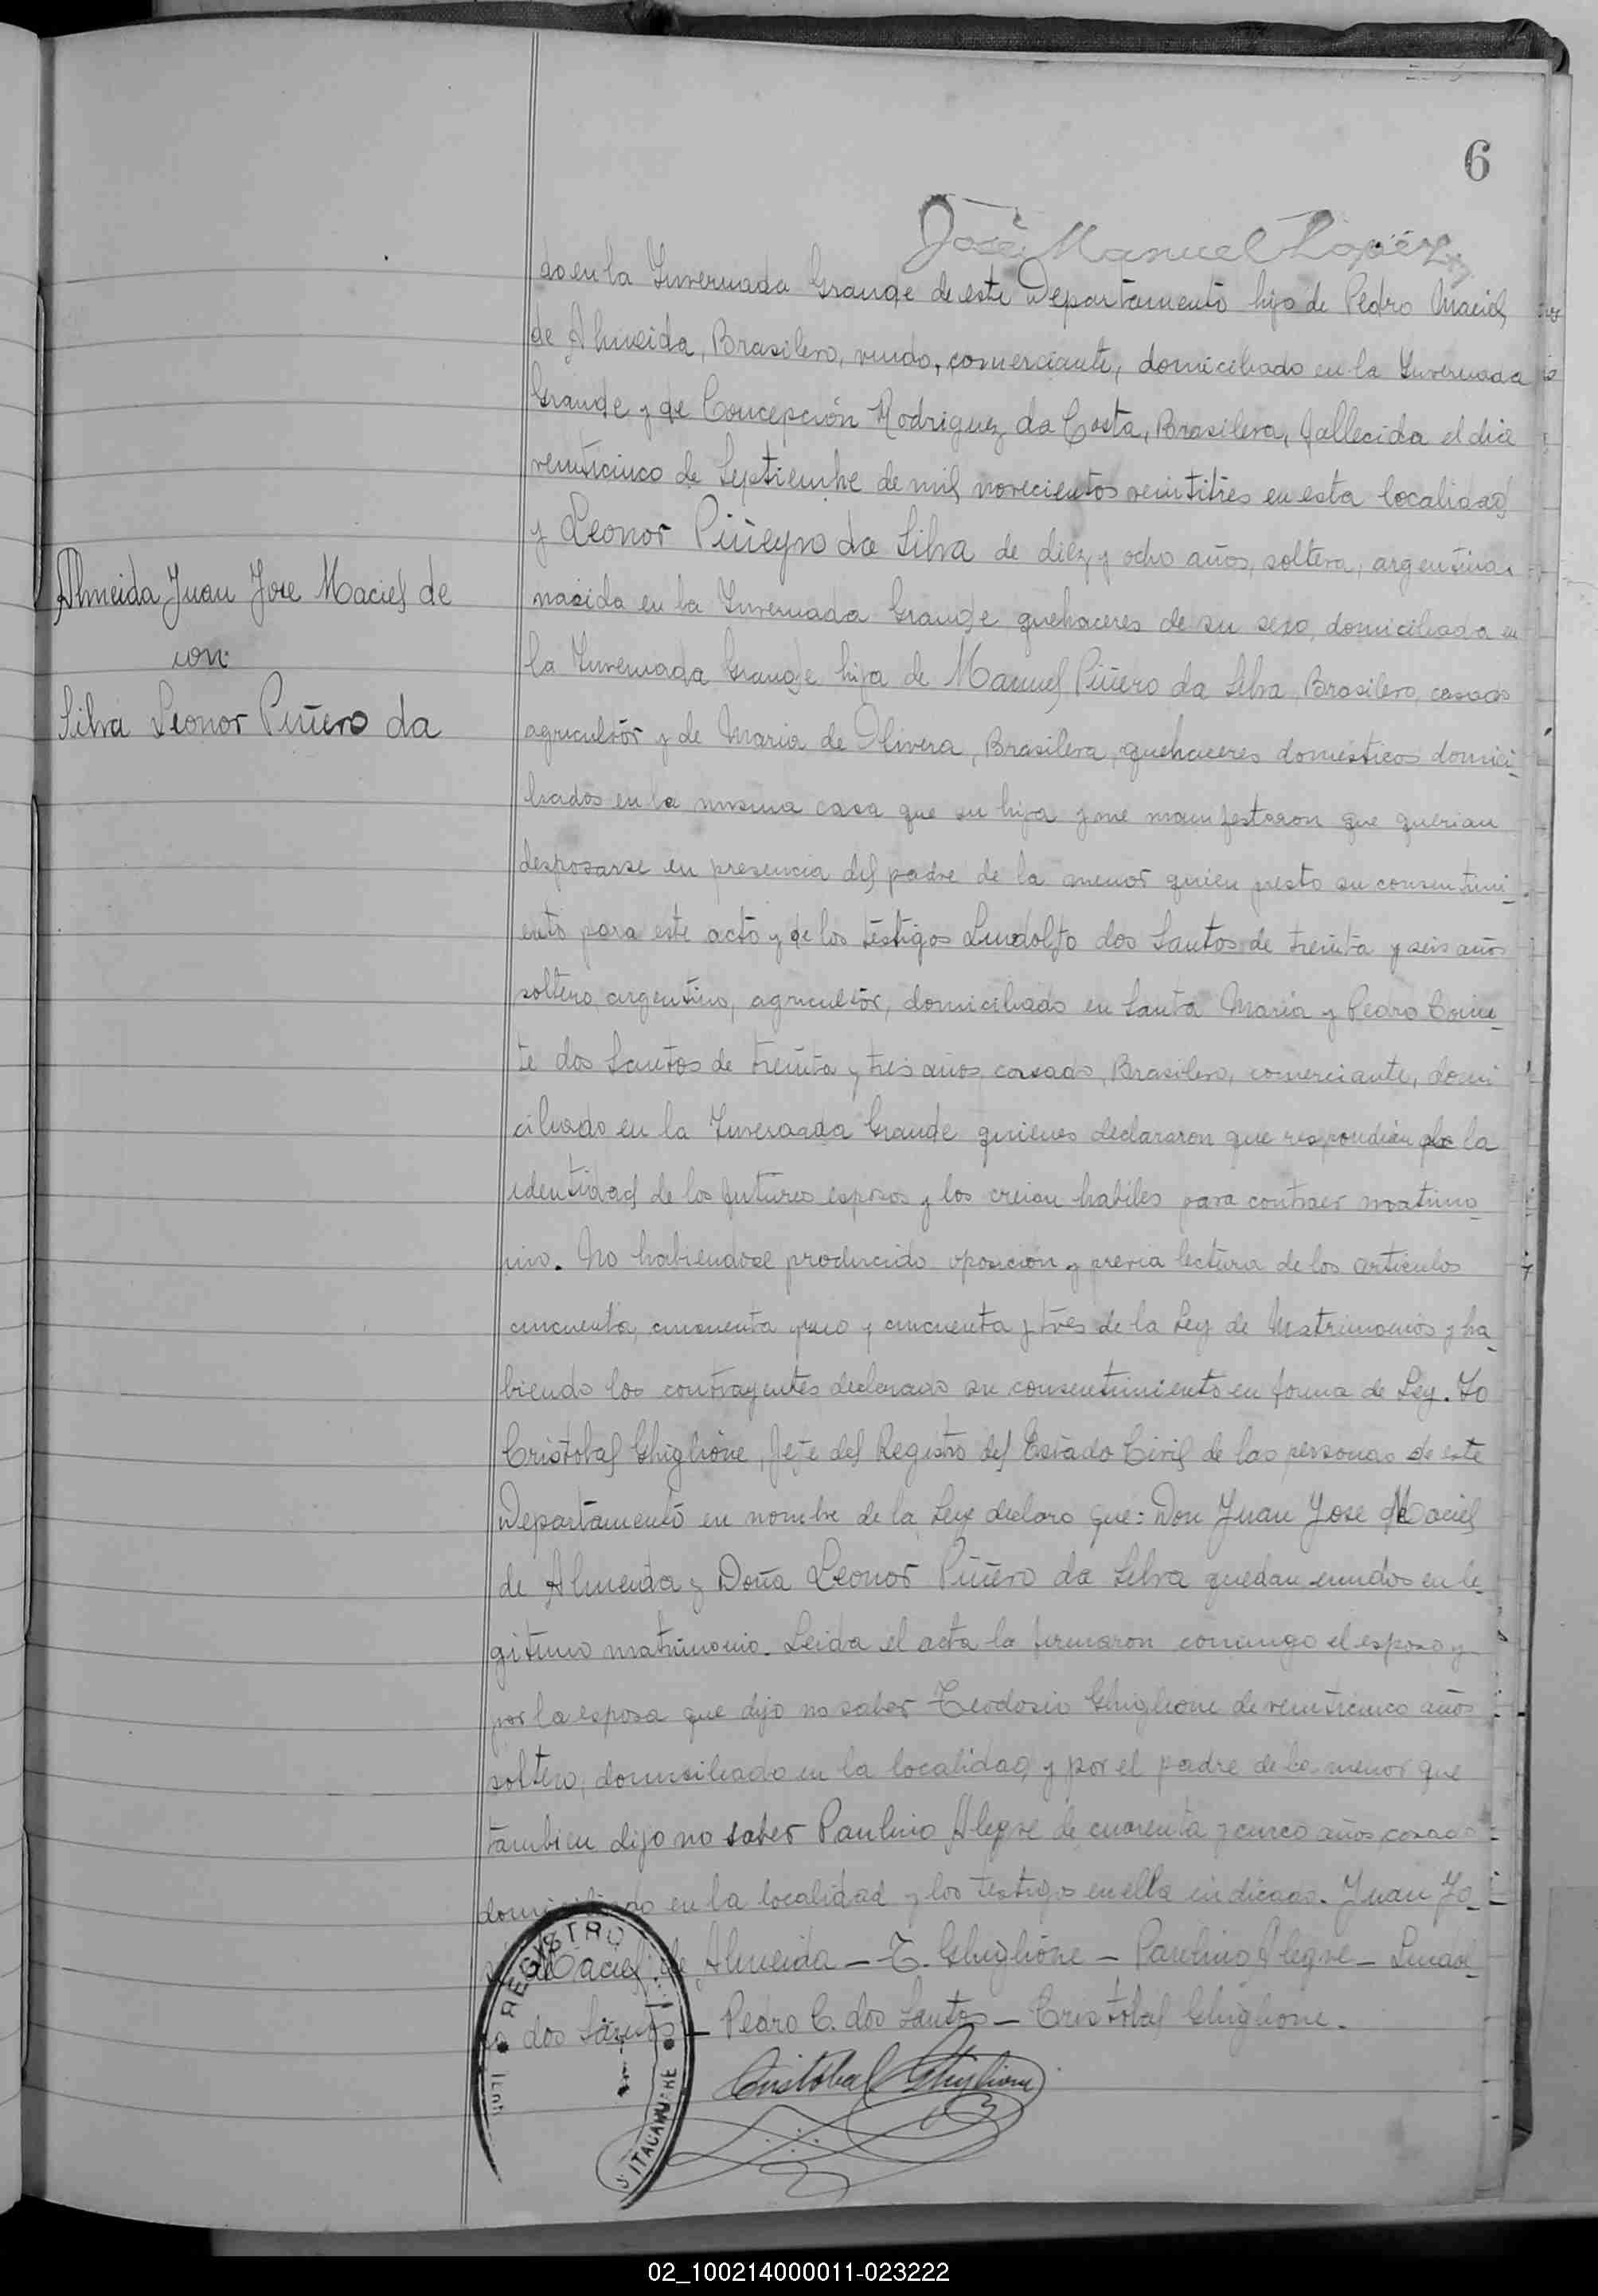 6
José Manuel Lopéz
do en la Invernada Grande de este Departamento hijo de Pedro Maciel
de Almeida, Brasilero, viudo, comerciante, domiciliado en la Invernada
Grande y de Concepción Rodriguez da Costa, Brasilera, fallecida el dia
veinticinco de Septiembre de mil novecientos veintitres en esta localidad
y Leonor Piñeyro da Silva de diez y ocho años, soltera, argentina
nacida en la Invernada Grande quehaceres de su sexo, domiciliada en
la Invernada Grande hija de Manuel Piñero da Silva, Brasilero, casado
agricultor y de Maria de Olivera, Brasilera, quehaceres domésticos domici-
liados en la misma casa que su hija y me manifestaron que querian
desposarse en presencia del padre de la menor quien presto su consentimi-
ento para este acto y de los testigos Lindolfo dos Santos de treinta y seis años
soltero, argentino, agricultor, domiciliado en Santa Maria y Pedro
te dos Santos de treinta y tres años, casado, Brasilero, comerciante, domi
ciliado en la Invernada Grande quienes declararon que respondian de la
identidad de los futuros esposos y los creian habiles para contraer matrimo-
nio. No habiendose producido oposición y previa lectura de los articulos
cincuenta, cincuenta y uno y cincuenta y tres de la Ley de Matrimonios y ha-
biendo los contrayentes declarado su consentimiento en forma de Ley. Yo
Cristobal Ghiglione, Jefe del Registro del Estado Civil de las personas de este
Departamento en nombre de la Ley declaro que: Don Juan Jose Maciel
de Almeida y Doña Leonor Piñero da Silva quedan unidos en le-
gitimo matrimonio. Leida el acta la firmaron conmigo el esposo y
por la esposa que dijo no saber Teodosio Ghiglione de veinticinco años
soltero, domisiliado en la localidad y por el padre de la menor que
tambien dijo no saber Paulino Alegre de cuarenta y cinco años, casado
domiciliado en la localidad y los testigos en ella indicados. Juan Jo-
se Maciel de Almeida – T. Ghiglione – Paulino Alegre – Lindol-
fo dos Santos – Pedro C. dos Santos – Cristobal Ghiglione.
Cristobal Ghiglione
Almeida Juan Jose Maciel de
con
Silva Leonor Piñero da
REGISTRO
ITACARUARE
02_100214000011-023222